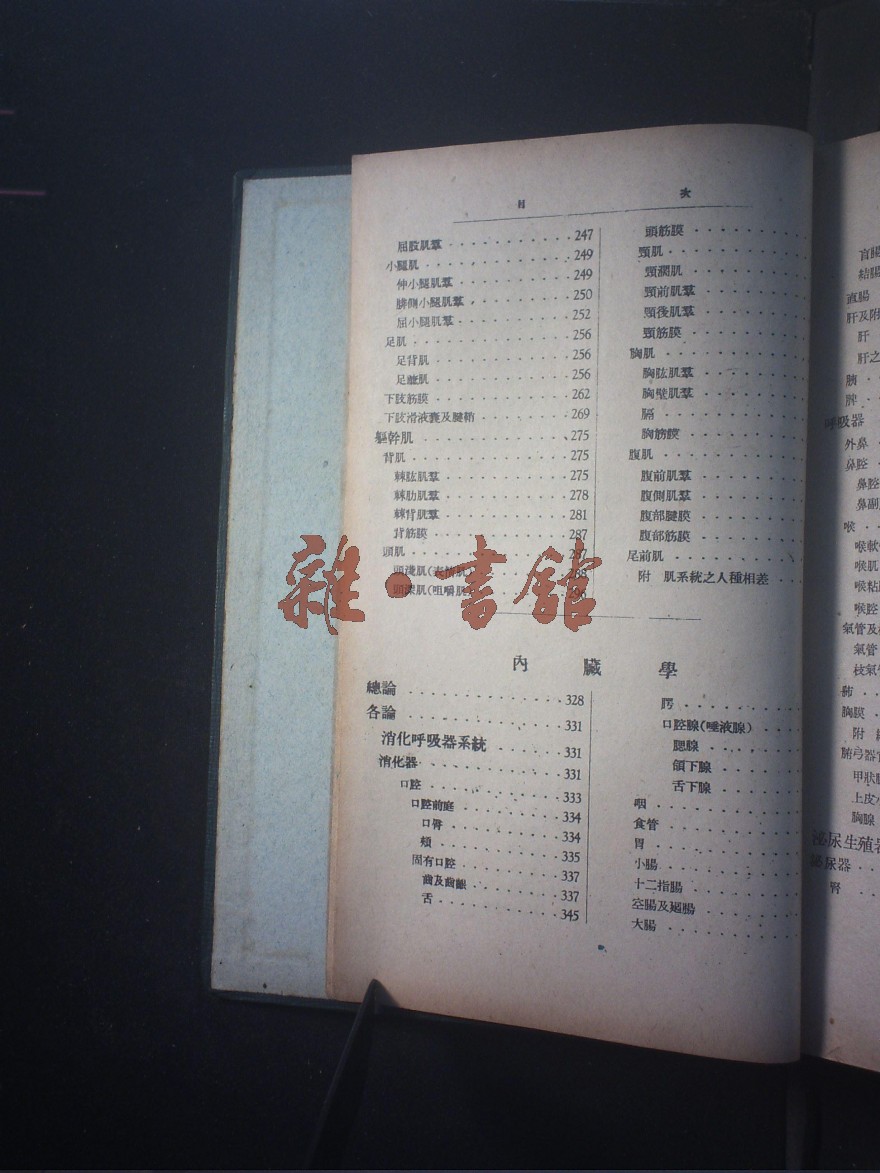 目 次
屈股肌羣 247
小腿肌 249
伸小腿肌羣 249
腓側小腿肌羣 250
屈小腿肌羣 252
足肌 256
足背肌 256
足蹠肌 256
下肢筋膜 262
下肢滑液囊及腱鞘 269
軀幹肌 275
背肌 275
棘肱肌羣 275
棘肋肌羣 278
棘背肌羣 281
背筋膜 287
頭肌 287
頭淺肌(表情肌) 288
頭深肌(咀嚼肌) 296
頭筋膜
頸肌
頸濶肌
頸前肌羣
頸後肌羣
頸筋膜
胸肌
胸肱肌羣
胸壁肌羣
膈
胸筋膜
腹肌
腹前肌羣
腹側肌羣
腹部腱膜
腹部筋膜
尾前肌
附 肌系統之人種相差
雜·書館
內臟學
總論 328
各論 331
消化呼吸器系統 331
消化器 331
口腔 333
口腔前庭 334
口脣 334
頰 335
固有口腔 337
齒及齒齦 337
舌 345
腭
口腔腺(唾液腺)
腮腺
頜下腺
舌下腺
咽
食管
胃
小腸
十二指腸
空腸及迴腸
大腸
盲腸
結腸
直腸
肝及附
肝
肝之
胰
脾
呼吸器
外鼻
鼻腔
鼻腔
鼻副
喉
喉軟
喉肌
喉粘
喉腔
氣管及
氣管
枝氣
肺
胸膜
附
腑弓器
甲狀
上皮
胸腺
泌尿生殖
泌尿器
腎